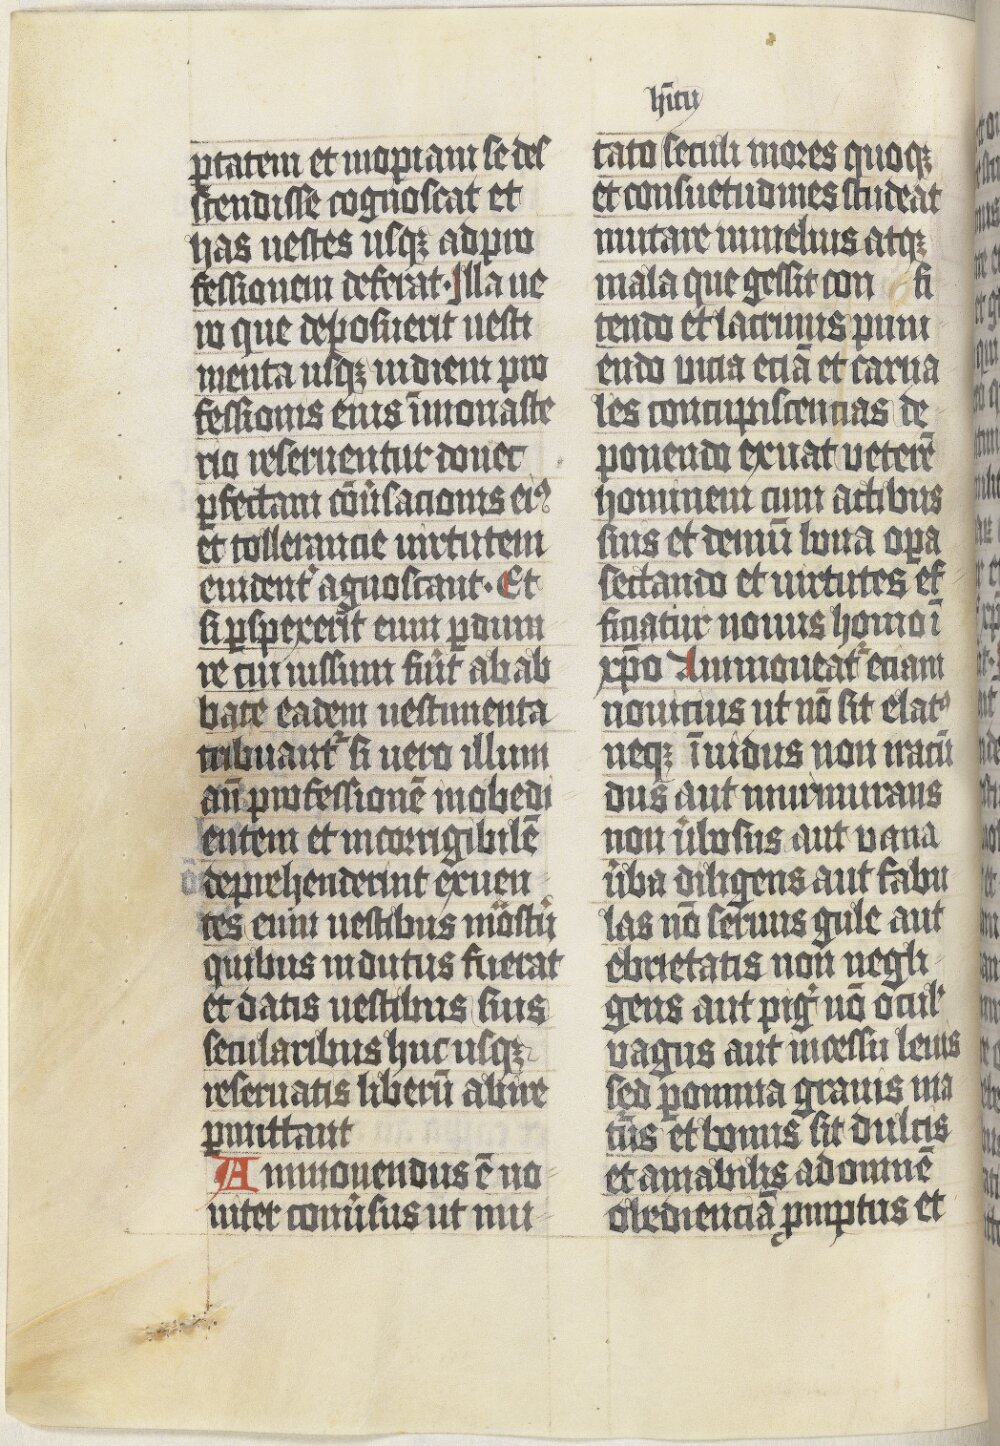 hītu
ꝑtatem et inopiam se des
scendisse cognoscat et
has uestes usqꝫ ad pro
fessionem deferat· Illa ue
ro que deposuerit uesti
menta usqꝫ in diem pro
fessionis eius ī monaste
rio reseruentur donec
ꝑfectam cōuͥsacionis eiꝰ
et tollerancie uirtutem
euident᷑ agnoscant· Et
si ꝑspexerīt eum ꝑdura
re cui iussum fūit ab ab
bate eadem uestimenta
tribuant᷑ si uero illum
an̄ professionē inobedi
entem et incorrigibilē
deprehenderint exuen
tes eum uestibus mōstͥi
quibus indutus fuerat
et datis uestibus suis
secularibus huc usqꝫ
reseruatis liberū abire
ꝑmittant
Ammonendus ē no
uiter conuͥsus ut mu
tato seculi mores quoqꝫ
et consuetudines studeat
mutare in melius atqꝫ
mala que gessit con fi
tendo et lacrimis puni
endo uicia eciā et carna
les concupiscencias de
ponendo exuat veterē
hominem cum actibus
suis et demū bona oꝑa
sectando et uirtutes ef
ficiatur nouus homo ī
xp̄o Ammoneat᷑ eciam
nouicius ut nō sit elatꝰ
neqꝫ īuidus non iracū
dus aut murmurans
non uͥbosus aut vana
uͥba diligens aut fabu
las nō seruus gule aut
ebrietatis non negli
gens aut pigͥ nō ocul᷑
vagus aut incessu leuis
sed pocius grauis ma
tūs et bonus sit dulcis
et amabilis ad omnē
obedienciā ꝓmptus et